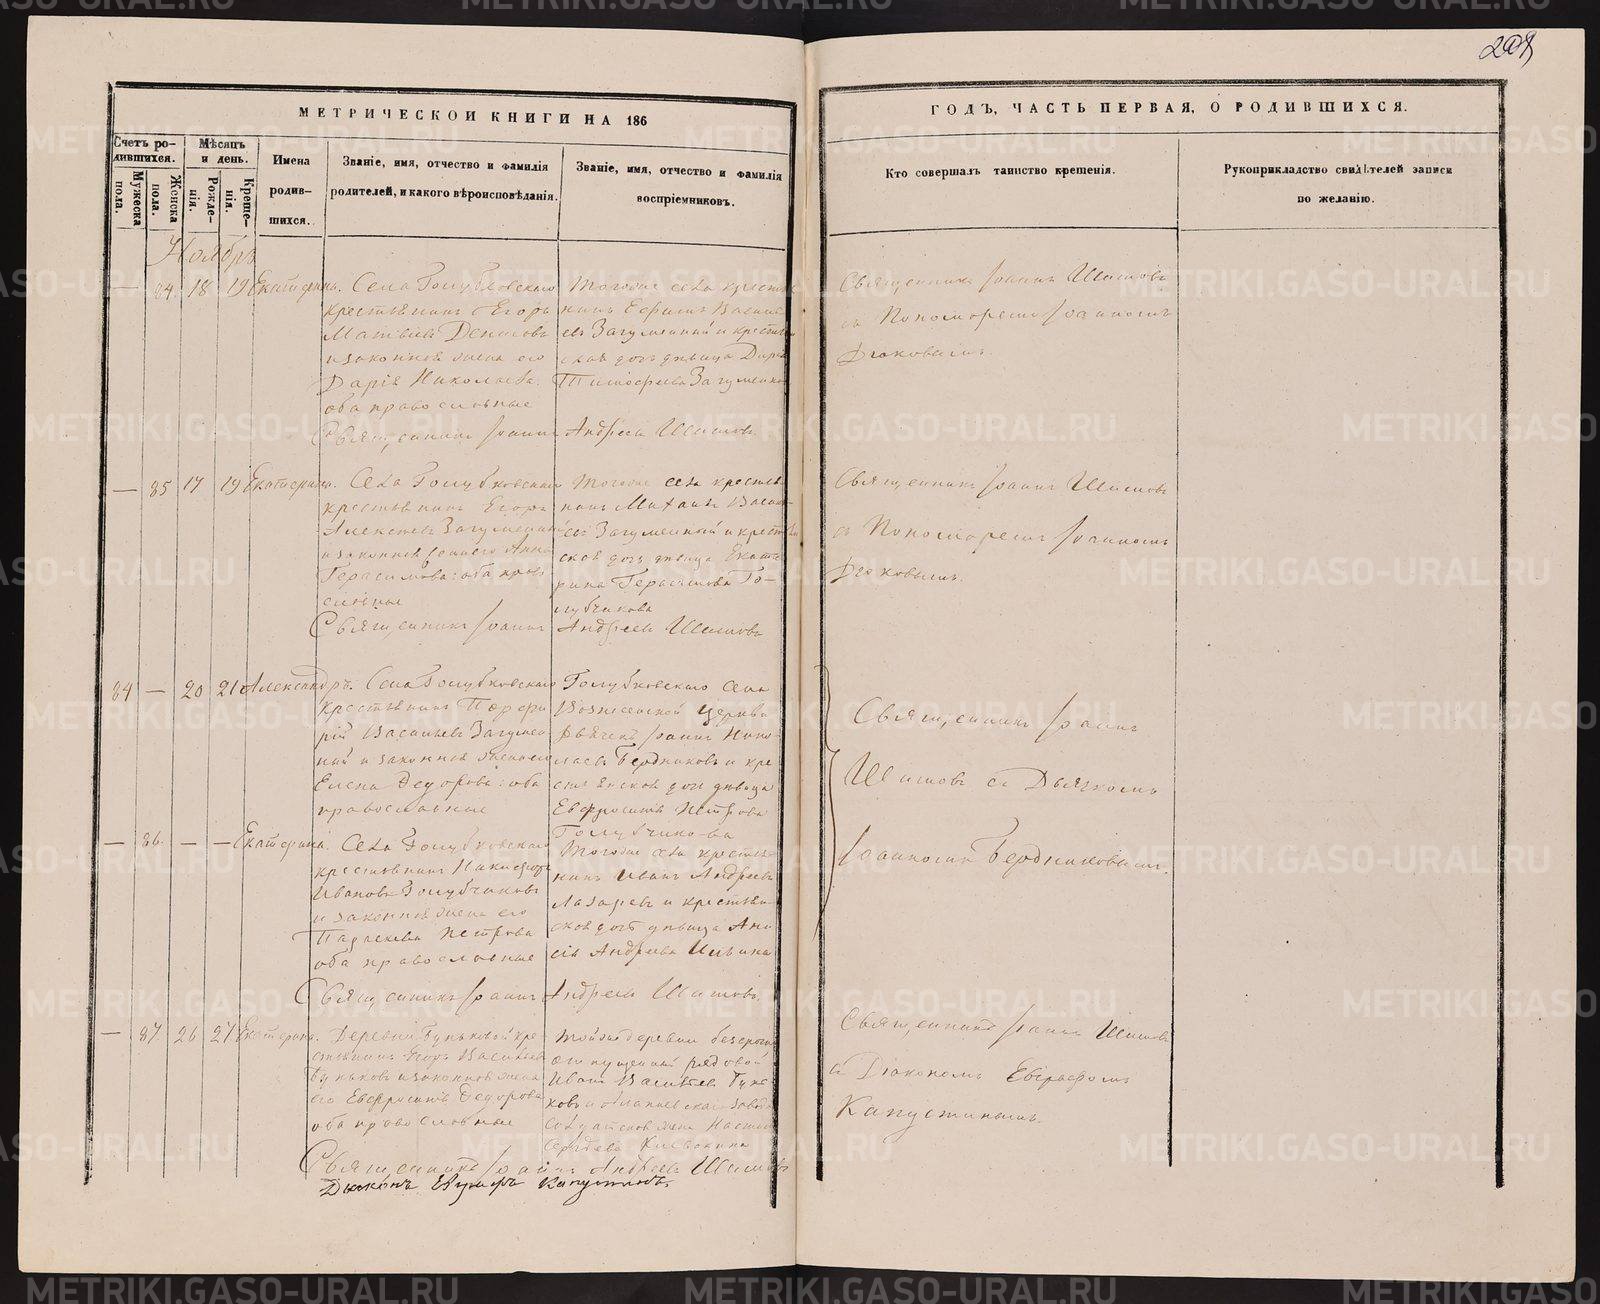 209
МЕТРИЧЕСКОЙ КНИГИ НА 186
ГОДЪ, ЧАСТЬ ПЕРВАЯ, О РОДИВШИХСЯ.
Счетъ ро-
дившихся.
Мужеска
пола.
Женска
пола.
Мѣсяцъ
и день.
Рожде-
нія.
Креще-
нія.
Имена
родив-
шихся.
Званіе, имя, отчество и фамилія
родителей, и какого вѣроисповѣданія.
Званіе, имя, отчество и фамилія
воспріемниковъ.
Кто совершалъ таинство крещенія.
Рукоприкладство свидѣтелей записи
по желанію.
Ноябрь
— 84 18 19 Екатерина.
Села Голубковскаго
крестьянинъ Егоръ
Матвѣевъ
и законная жена его
Дарія Николаева.
оба православные
Тогоже села крестья
нинъ Ефимъ Василь
евъ Загуменный и крестьян
ская дочь дѣвица Дарья
Тимофеева Загуменна
Священникъ Іоаннъ Шишовъ
съ Пономаремъ Іоанномъ
Дьяковымъ.
Священникъ Іоаннъ Андреевъ Шишовъ
— 85 17 19 Екатерина.
Села Голубковскаго
крестьянинъ Егоръ
Алексѣевъ Загуменный
и законная жена его Анна
Герасимова: оба право
славные
Тогоже села крестья
нинъ Михаилъ Василь
евъ Загуменный и крестьян
ская дочь дѣвица Екате
рина Герасимова Го-
лубчикова
Священникъ Іоаннъ Шишовъ
съ Пономаремъ Іоанномъ
Дьяковымъ.
Священникъ Іоаннъ Андреевъ Шишовъ
84 — 20 21 Александръ.
Села Голубковскаго
крестьянинъ Порфи
рій Васильевъ Загумен
ный и законная жена его
Елена Федорова: оба
православные
Голубковскаго села
Вознесенской церкви
Дьячекъ Іоаннъ Нико-
лаевъ Бердниковъ и кре
стьянская дочь дѣвица
Евфросинія Петрова
Голубчикова
Священникъ Іоаннъ
Шишовъ съ Дьячкомъ
Іоанномъ Бердниковымъ.
— 86 — — Екатерина.
Села Голубковскаго
крестьянинъ Никифоръ
Ивановъ Голубчиковъ
и законная жена его
Параскева Петрова
оба православные
Тогоже села крестья-
нинъ Иванъ Андреевъ
Лазаревъ и крестьян
ская дочь дѣвица Ани
сія Андреева Ильина
Священникъ Іоаннъ Андреевъ Шишовъ.
— 87 26 27 Екатерина.
Деревни Буньковой кре
стьянинъ Егоръ Васильевъ
Буньковъ и законная жена
его Евфросинія Федорова
оба православные
Тойже деревни безсрочно
отпущенный рядовой
Иванъ Васильевъ Бунь
ковъ и
солдатская жена Настас
Сергѣева
Священникъ Іоаннъ Шишовъ
съ Діакономъ Евграфомъ
Капустинымъ.
Священникъ Іоаннъ Андреевъ Шишовъ
Діаконъ Евграфъ Капустинъ.
METRIKI.GASO-URAL.RU